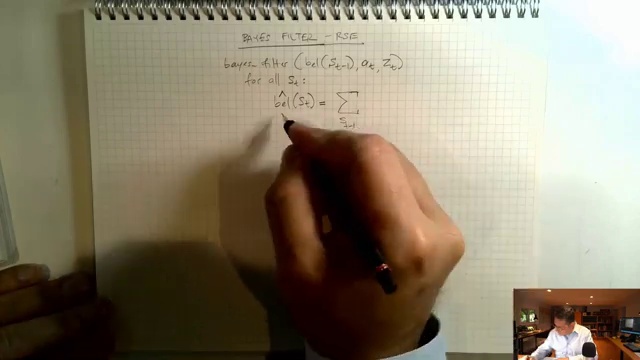 BAYES FILTER - RSE
bayes filter (bel(St-1), at, Zt)
for all St:
b̂el(St) = ∑
St-1